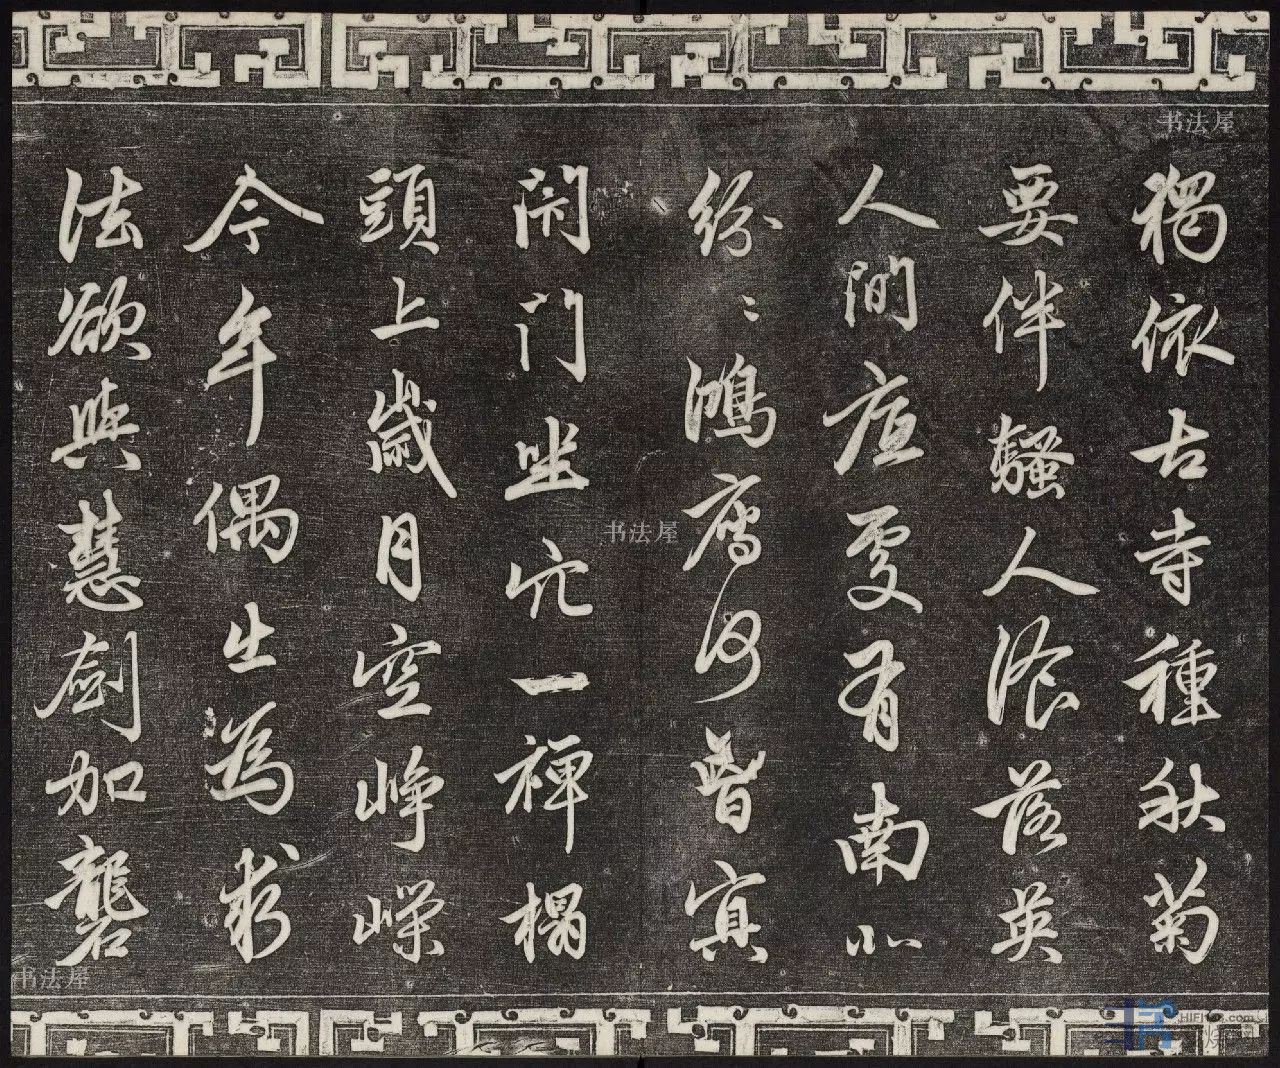 獨依古寺種秋菊
要伴騷人湌落英
人間底處有南北
紛〻鴻鴈何曾冥
閇門坐穴一禪榻
頭上歲月空崢嶸
今年偶出為求
法欲與慧劍加礱
书法屋
书法屋
书法屋